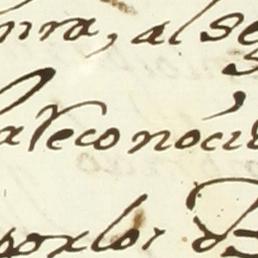 nra, al se
la reconoci
por los D